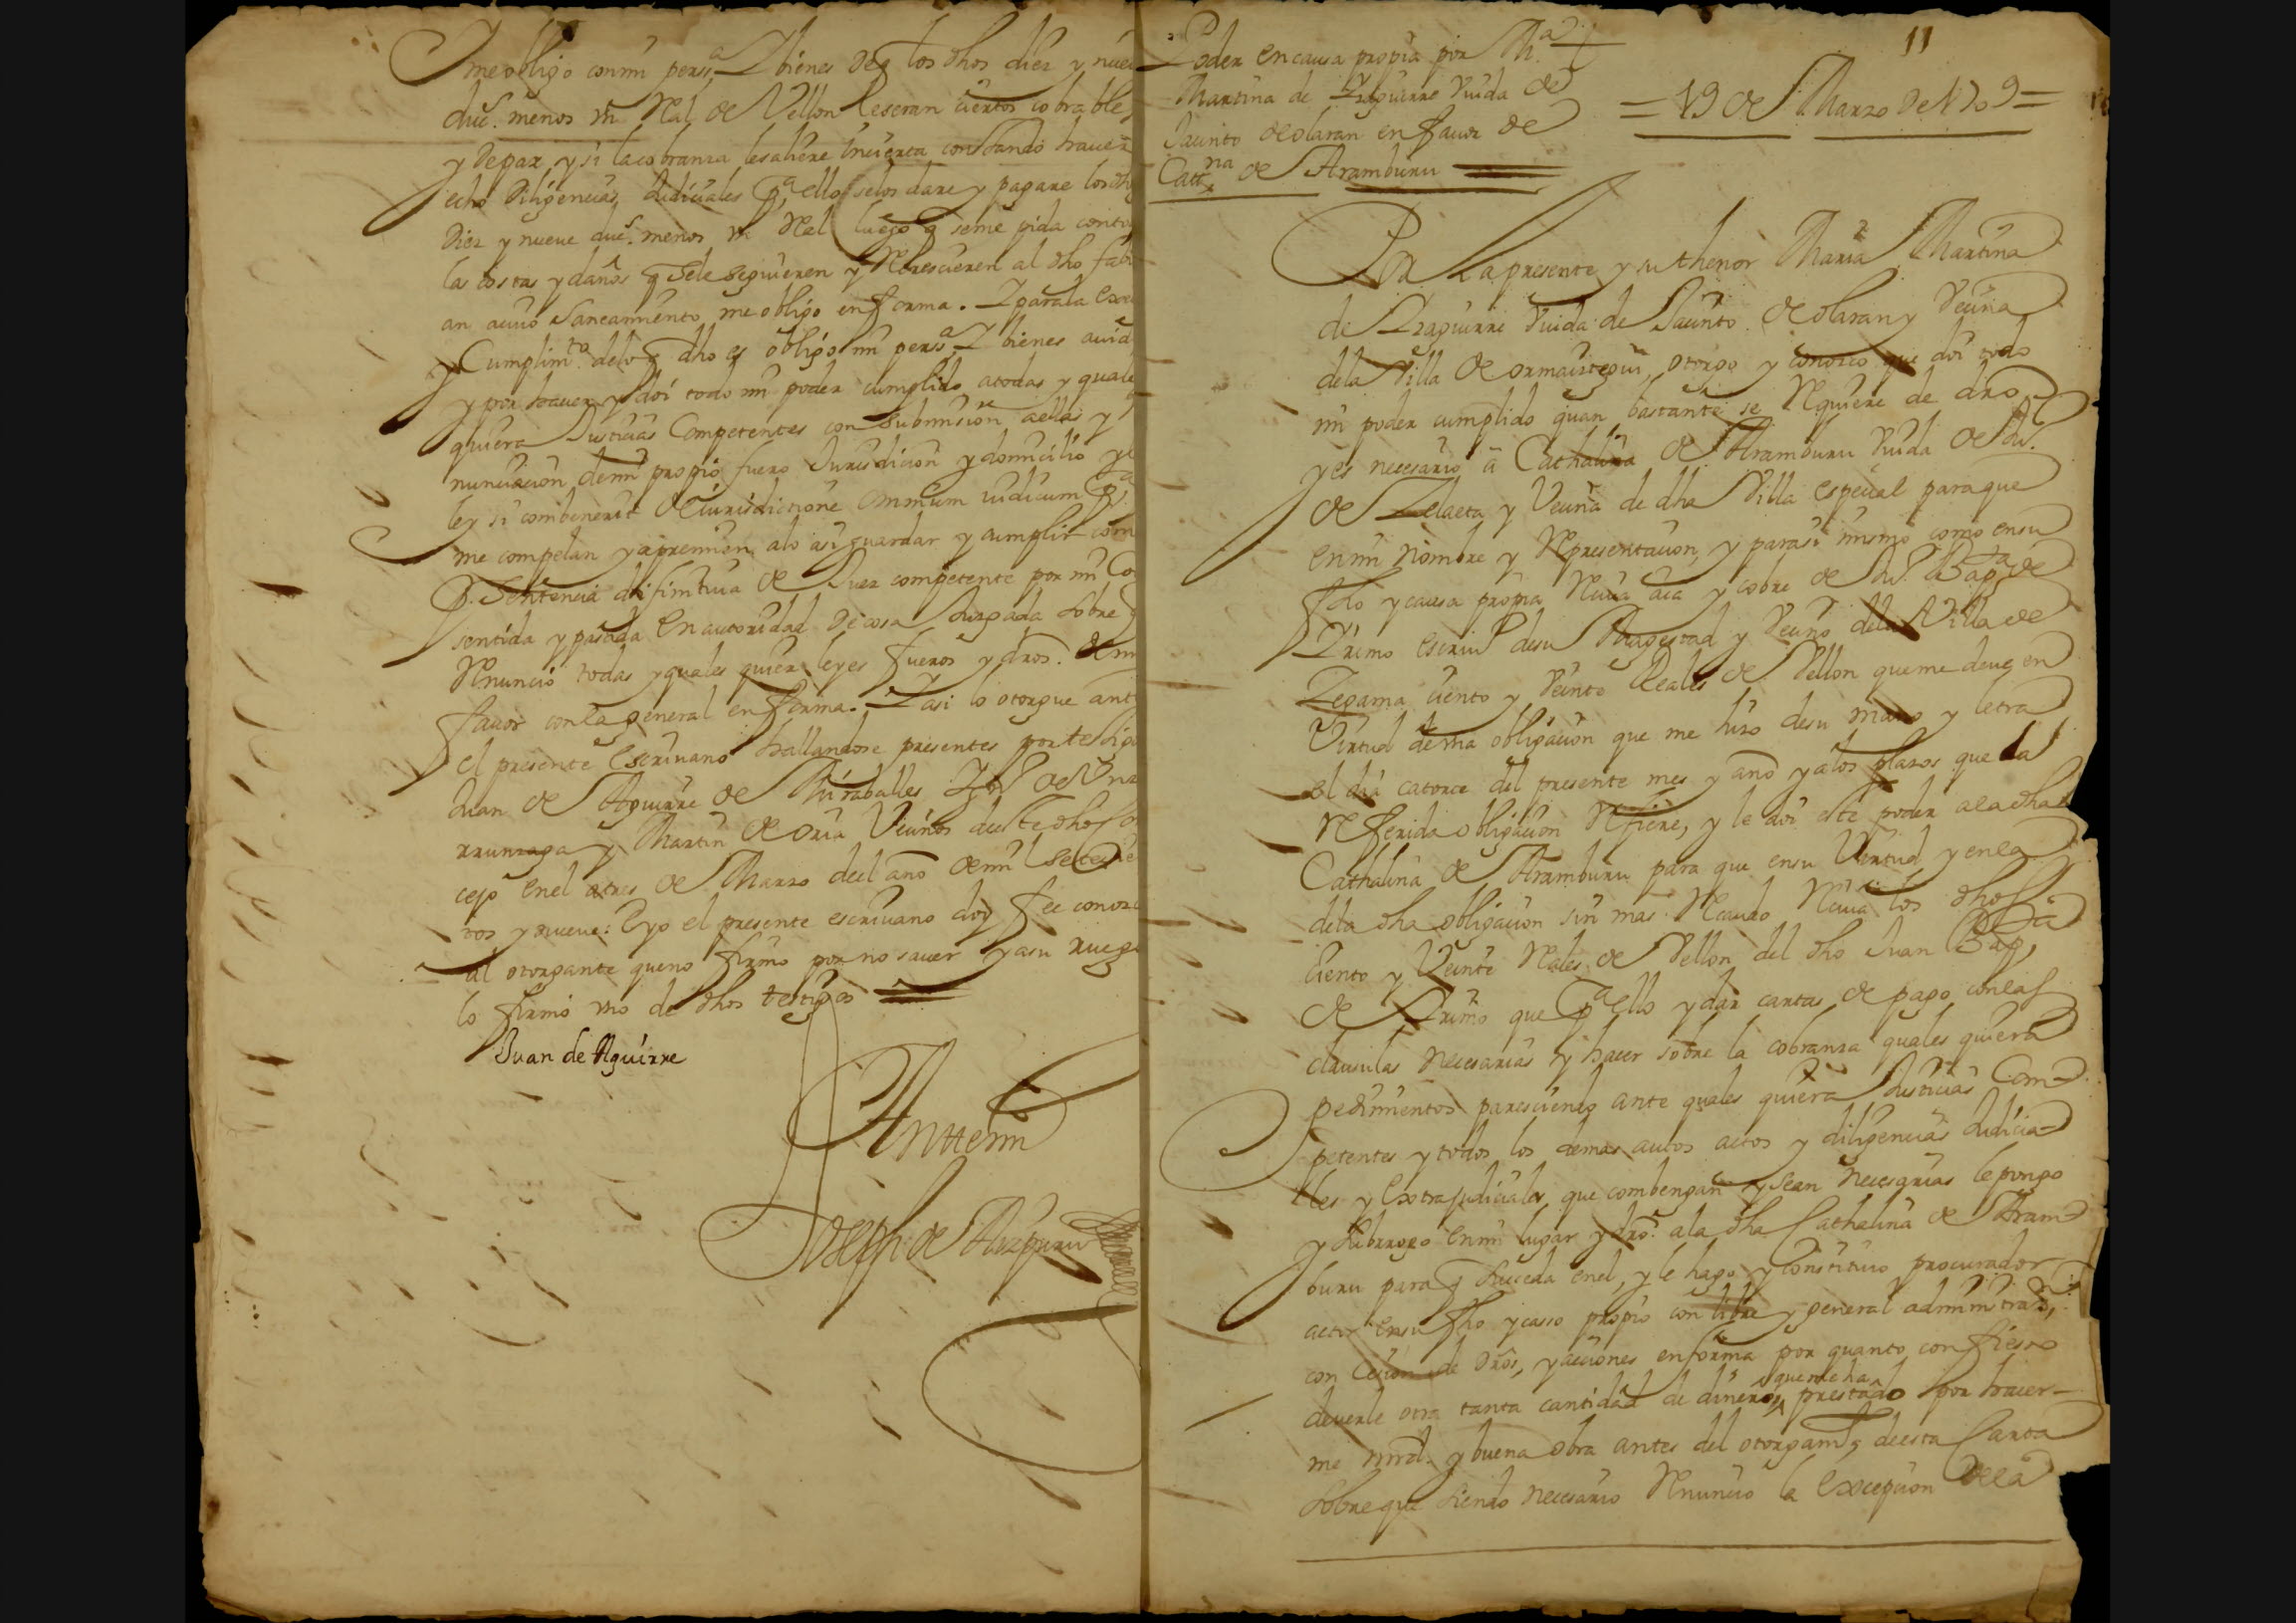 me obligo con mi persª Y bienes de q los dhos diez y nueu
ducˢ. menos vn Real de Vellon le seran ciertos cobrables
y de paz y si la cobranza le saliere incierta constando hauer
echo diligencias Judiciales pª ello se los dare y pagare los dhos
diez y nueve ducˢ. menos vn Real luego q se me pida con to
las costas y daños q se le seguieren y Recrescieren al dho fabi
an a cuio Saneamiento me obligo en forma. Y para la exe
y Cumplimᵗᵒ. de lo q dho es obligo mi persª Y bienes auid
y por hauer y doi todo mi poder cumplido a todas y quale
quiera Justicias Competentes con Submision a ellas y
nunciacion de mi propio fuero Jurisdicion y domicilio y l
ley si combenerit de iurisdictione omnium iudicum pª
me compelan y apremien a lo asi guardar y cumplir com
p. Sentencia difinitiua de Juez competente por mi Co
sentida y pasada en autoridad de cosa Juzgada sobre q
Renuncio todas y quales quier leyes fueros y dros. de mi
fauor con la general en forma. Y asi lo otorgue ante
el presente escriuano hallandose presentes por testigo
Juan de Aguirre de Miraballes
rrunzaga y Martin de Oria Vecinos deste dho Co
cejo en el a tres de Marzo deel año de mil setecie
tos y nueve: E yo el presente escriuano doy fee conozc
al otorgante que no firmo por no sauer y a su ruego
lo firmo vno de dhos testigos
Juan de Aguirre
Ante mi
Joseph de Aizpuru
11
Poder en causa propia por Mª
Martina de Yzaguirre Viuda de
Jacinto de olaran en fauor de
Cattⁿᵃ de Aramburu
= 19 de Marzo de 1709 =
Por La presente y su thenor Maria Martina
de Yzaguirre Viuda de Jacinto de olaran y Vecina
de la Villa de ormaiztegui, otorgo y conozco que doi todo
mi poder cumplido quan bastante se Requiere de dro
y es necesario a Cathalina de Aramburu Viuda de Juº.
de Zelaeta y Vecina de dha Villa especial para que
en mi nombre y Representacion, y para si mismo como en su
fho y causa propia Reciua aia y cobre de Juº. Bapᵗᵃ de
Yrimo escriuº de su Magestad y Vecino dela Villa de
Zegama ciento y Veinte Reales de Vellon que me deue en
Virtud de vna obligacion que me hizo de su mano y letra
el dia catorce del presente mes y año y a los plazos que la
Referida obligacion Refiere, y le doi este poder a la dha
Cathalina de Aramburu para que en su Virtud y en la
dela dha obligacion sin mas Recaudo Reciua los dhos
Ciento y Veinte Reales de Vellon del dho Juan Bapᵗᵃ
de Yrimo que pª ello y dar cartas de pago con las
clausulas necesarias y hacer sobre la cobranza quales quiera
pedimientos paresciendo ante quales quiera Justicias Com-
petentes y todos los demas autos actos y diligencias Judicia-
les y Extrajudiciales que combengan y sean necesarias le pongo
y subrrogo en mi lugar y dro. a la dha Cathalina de Aram-
buru para q suceda en el, y le hago y constituio procurador
actor en su fho y casso propio con libre y general administrazⁿ.
con Cesion de dros, y acciones en forma por quanto confieso
deuerle otra tanta cantidad de dineros que me ha prestado por hacer-
me mrd. y buena obra antes del otorgamᵗᵒ deesta Carta
sobre que siendo necesario Renuncio la Excepcion dela